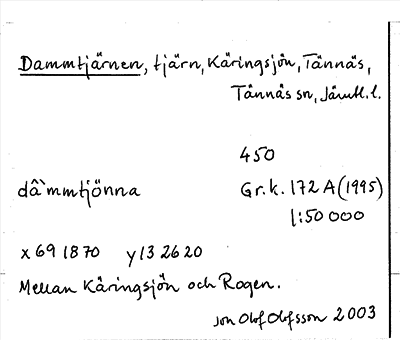 Dammtjärnen, tjärn, Käringsjön, Tännäs,
Tännäs sn, Jämtl. l.
450
dâ`mmtjönna
Gr. k. 172 A (1995)
1:50 000
x 69 18 70 y 13 26 20
Mellan Käringsjön och Rogen.
Jon Olof Olofsson 2003